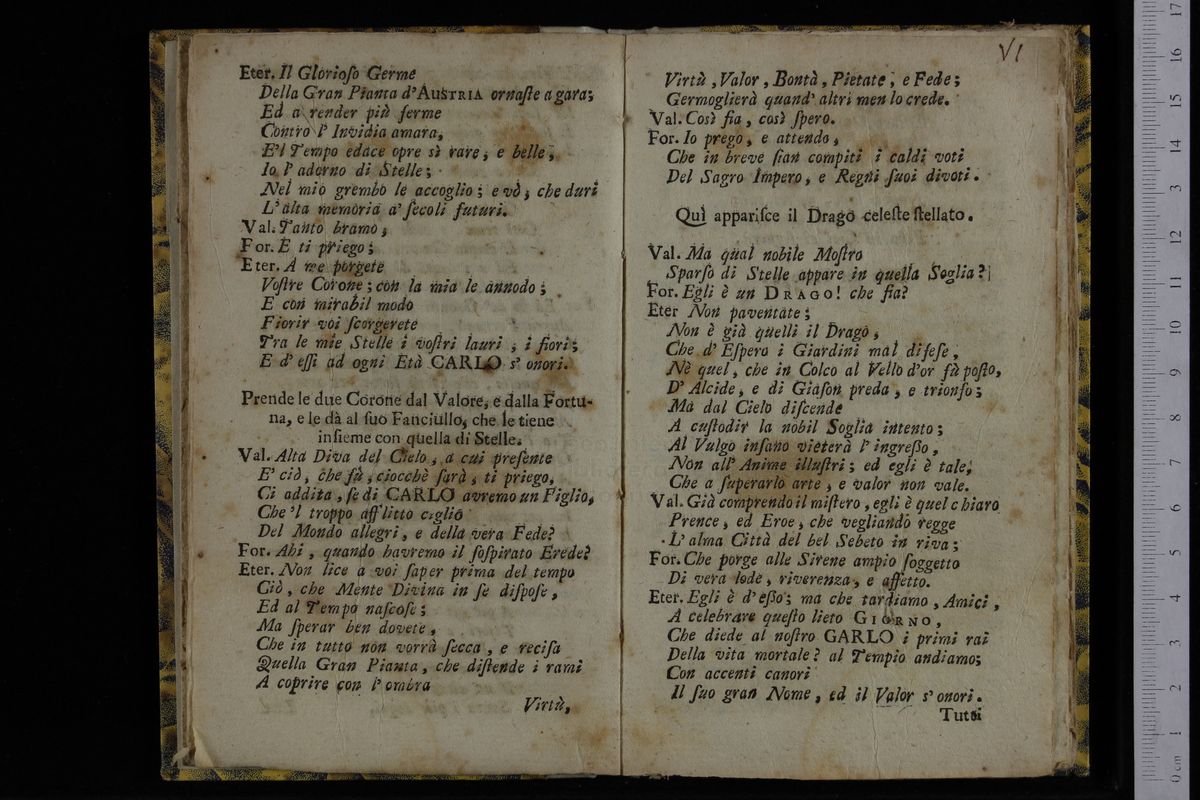 Eter. Il Glorioſo Germe
Della Gran Pianta d'AUSTRIA ornaſte a gara;
Ed a render più ferme
Contro l' Invidia amara,
E'l Tempo edace opre sì rare, e belle,
Io l' adorno di Stelle;
Nel mio grembo le accoglio; e vò, che duri
L' alta memoria a' ſecoli futuri.
Val. Tanto bramo,
For. E ti priego;
Eter. A me porgete
Voſtre Corone; con la mia le annodo;
E con mirabil modo
Fiorir voi ſcorgerete
Tra le mie Stelle i voſtri lauri, i fiori;
E d' eſſi ad ogni Età CARLO s' onori.
Prende le due Corone dal Valore, e dalla Fortu-
na, e le dà al ſuo Fanciullo, che le tiene
inſieme con quella di Stelle.
Val. Alta Diva del Cielo, a cui preſente
E' ciò, che fù, ciocchè ſarà, ti priego,
Ci addita, ſe di CARLO avremo un Figlio,
Che 'l troppo afflitto ciglio
Del Mondo allegri, e della vera Fede?
For. Ahi, quando havremo il ſoſpirato Erede?
Eter. Non lice a voi ſaper prima del tempo
Ciò, che Mente Divina in ſe diſpoſe,
Ed al Tempo naſcoſe;
Ma ſperar ben dovete,
Che in tutto non vorrà ſecca, e reciſa
Quella Gran Pianta, che diſtende i rami
A coprire con l' ombra
Virtù,
VI
Virtù, Valor, Bontà, Pietate, e Fede;
Germoglierà quand' altri men lo crede.
Val. Così fia, così ſpero.
For. Io prego, e attendo,
Che in breve ſian compiti i caldi voti
Del Sagro Impero, e Regni ſuoi divoti.
Quì appariſce il Drago celeſte ſtellato.
Val. Ma qual nobile Moſtro
Sparſo di Stelle appare in quella Soglia?
For. Egli è un DRAGO! che fia?
Eter Non paventate;
Non è già quelli il Drago,
Che d' Eſpero i Giardini mal difeſe,
Nè quel, che in Colco al Vello d'or fù poſto,
D' Alcide, e di Giaſon preda, e trionfo;
Ma dal Cielo diſcende
A cuſtodir la nobil Soglia intento;
Al Vulgo inſano vieterà l' ingreſſo,
Non all' Anime illuſtri; ed egli è tale,
Che a ſuperarlo arte, e valor non vale.
Val. Già comprendo il miſtero, egli è quel chiaro
Prence, ed Eroe, che vegliando regge
L' alma Città del bel Sebeto in riva;
For. Che porge alle Sirene ampio ſoggetto
Di vera lode, riverenza, e affetto.
Eter. Egli è d' eſſo; ma che tardiamo, Amici,
A celebrare queſto lieto GIORNO,
Che diede al noſtro CARLO i primi rai
Della vita mortale? al Tempio andiamo;
Con accenti canori
Il ſuo gran Nome, ed il Valor s' onori.
Tutti
0 cm 1 2 3 4 5 6 7 8 9 10 11 12 13 14 15 16 17